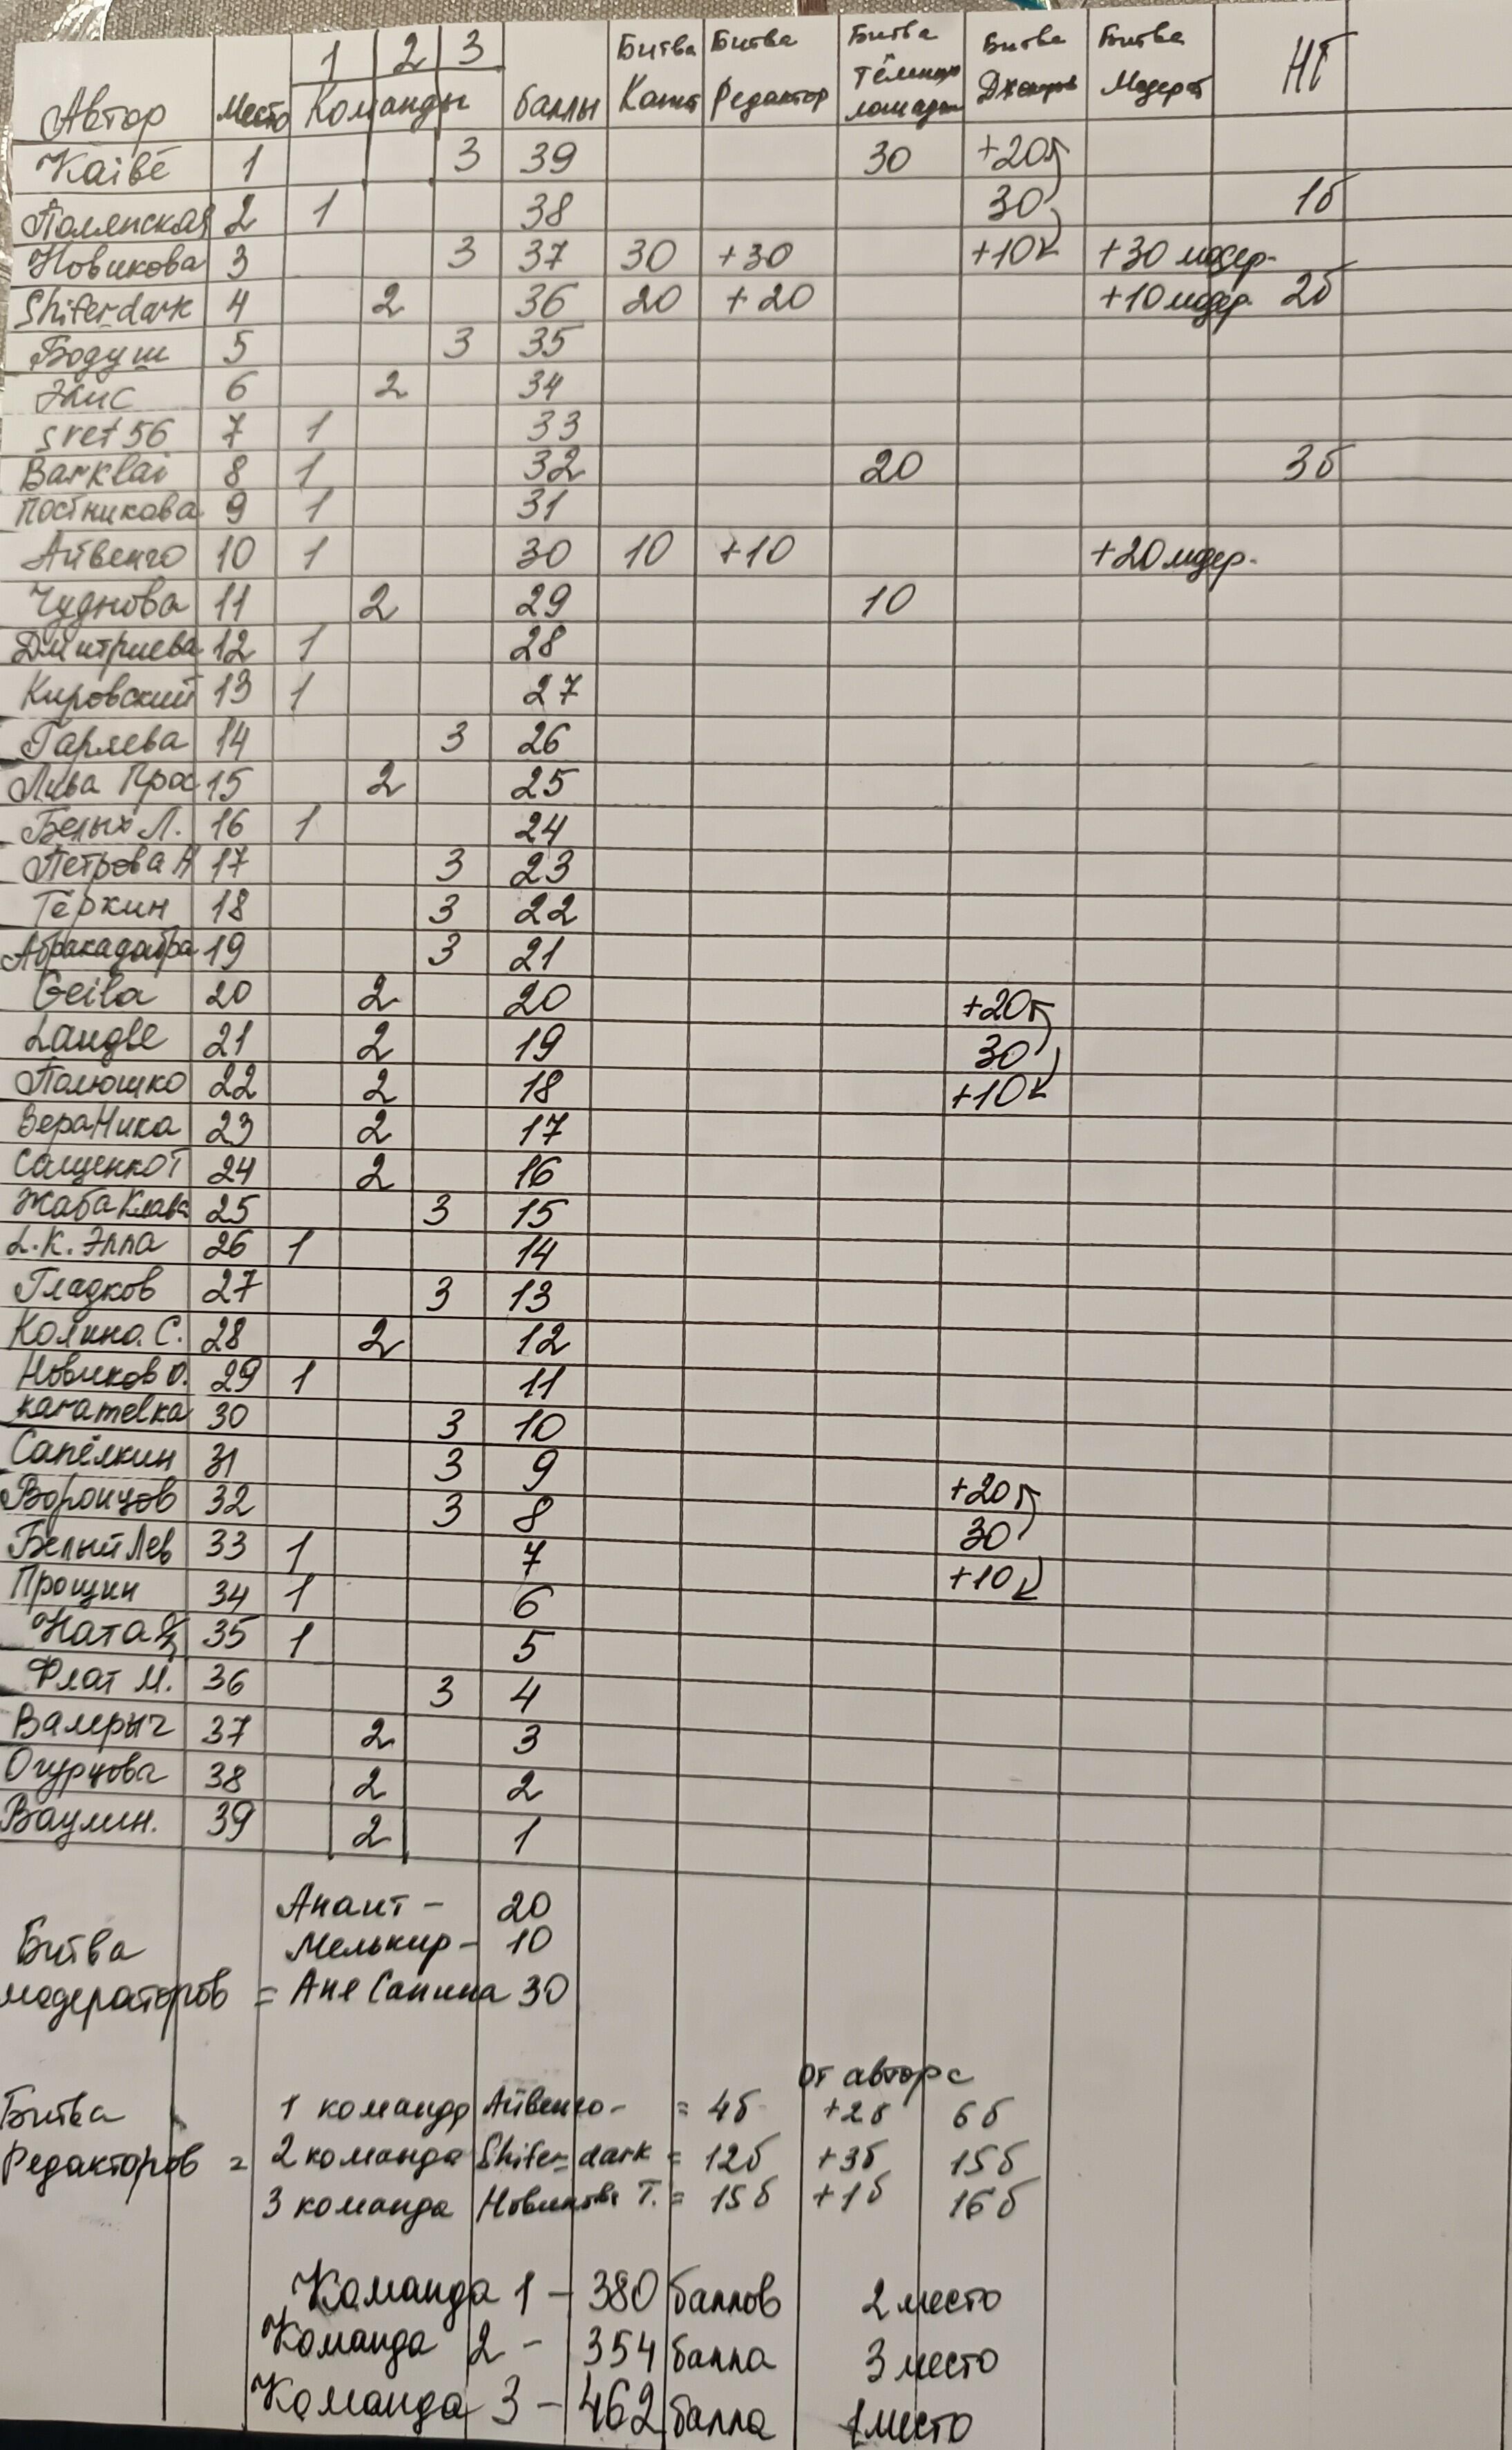 1 2 3
Автор Место Команды баллы Битва Капит Битва Редактор Битва тёмных лошадок Битва Джокеров Битва Модерат НГ
Kaibē 1 3 39 30 +20
Полянская 2 1 38 30 1б
Новикова 3 3 37 30 +30 +10 +30 модер.
Shiferdark 4 2 36 20 +20 +10 модер. 2б
Бодуш 5 3 35
Элис 6 2 34
svet56 7 1 33
Barklai 8 1 32 20 3б
Постникова 9 1 31
Айвенго 10 1 30 10 +10 +20 мдер.
Чуднова 11 2 29 10
Дмитриева 12 1 28
Кировский 13 1 27
Гаряева 14 3 26
Лива Прос 15 2 25
Белых Л. 16 1 24
Петрова Н 17 3 23
Тёркин 18 3 22
Абракадабра 19 3 21
Geila 20 2 20 +20
Langle 21 2 19 30
Полюшко 22 2 18 +10
ВераНика 23 2 17
Сащенко Т 24 2 16
Жаба Клава 25 3 15
L.K. Элла 26 1 14
Гладков 27 3 13
Колино. С. 28 2 12
Новиков О. 29 1 11
karamelka 30 3 10
Сапёлкин 31 3 9 +20
Воронцов 32 3 8 30
Белый Лев 33 1 7 +10
Прощин 34 1 6
Ната 35 1 5
Флат М. 36 3 4
Валерыч 37 2 3
Огурцова 38 2 2
Ваулин. 39 2 1
Анаит - 20
Битва Мелькир - 10
модераторов = Аня Санина 30
от автора
Битва 1 команда Айвенго - = 4б +2б 6б
Редакторов = 2 команда Shifer dark = 12б +3б 15б
3 команда Новикова Т. = 15б +1б 16б
Команда 1 - 380 баллов 2 место
Команда 2 - 354 балла 3 место
Команда 3 - 462 балла 1 место